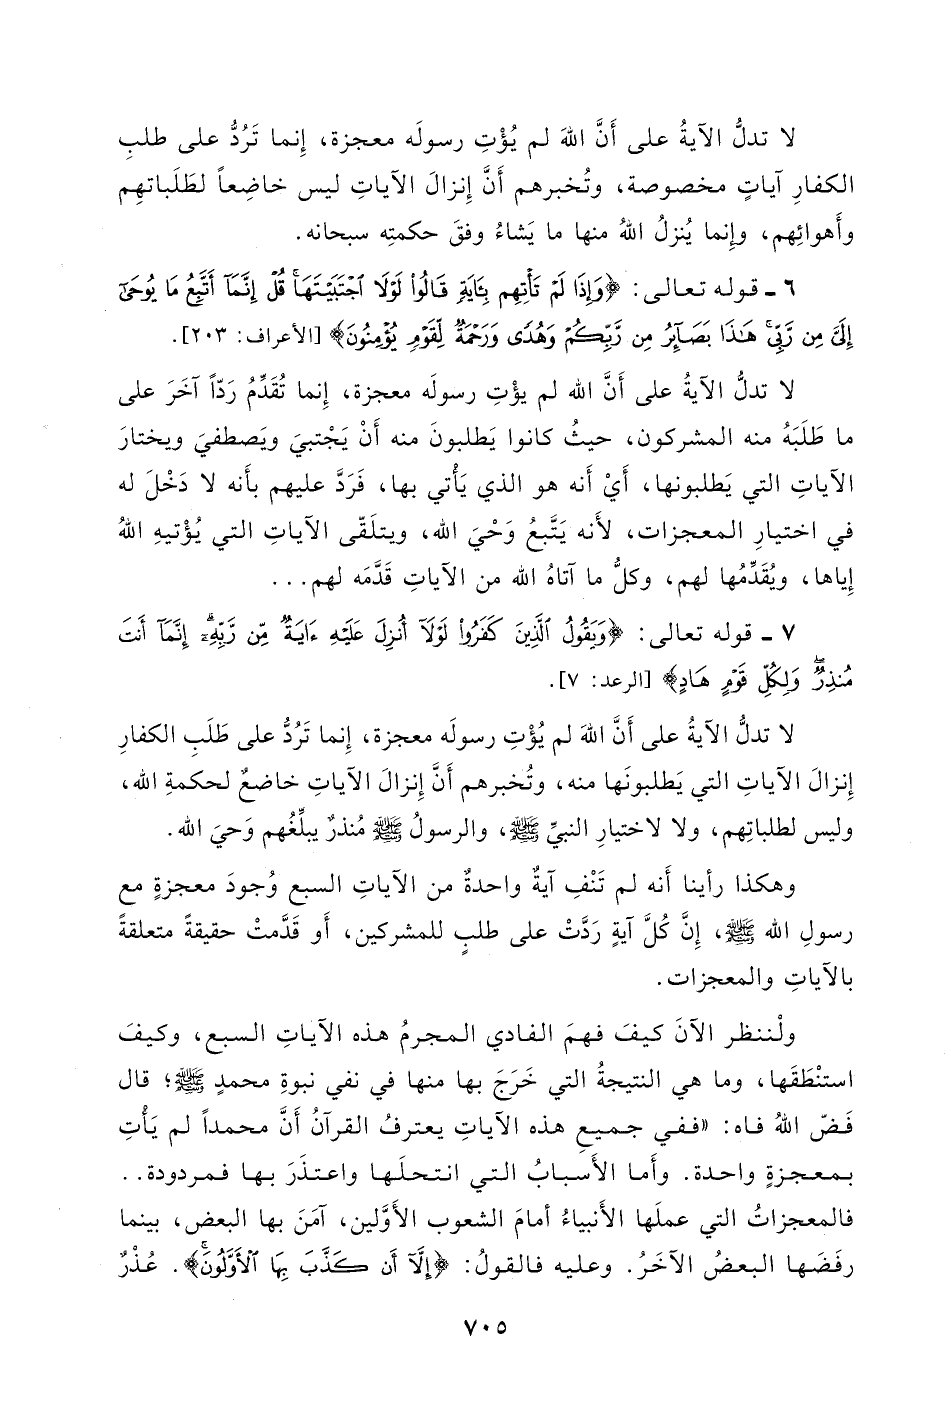 لا تدلُّ الآيةُ على أَنَّ اللهَ لم يُؤْتِ رسولَه معجزة، إِنما تَرُدُّ على طلبِ
الكفارِ آياتٍ مخصوصة، وتُخبرهم أَنَّ إِنزالَ الآياتِ ليس خاضِعاً لطَلَباتهِم
وأَهوائِهم، وإِنما يُنزلُ اللهُ منها ما يَشاءُ وفقَ حكمتِه سبحانه.
٦ ـ قوله تعالى: ﴿وَإِذَا لَمْ تَأْتِهِم بِـَٔايَةٍ قَالُوا۟ لَوْلَا ٱجْتَبَيْتَهَا ۚ قُلْ إِنَّمَآ أَتَّبِعُ مَا يُوحَىٰٓ
إِلَىَّ مِن رَّبِّى ۚ هَـٰذَا بَصَآئِرُ مِن رَّبِّكُمْ وَهُدًى وَرَحْمَةٌ لِّقَوْمٍ يُؤْمِنُونَ﴾ [الأعراف: ٢٠٣].
لا تدلُّ الآيةُ على أَنَّ الله لم يؤْتِ رسولَه معجزة، إِنما تُقَدِّمُ رَدّاً آخَرَ على
ما طَلَبَهُ منه المشركون، حيثُ كانوا يَطلبونَ منه أَنْ يَجْتبيَ ويَصطفيَ ويختارَ
الآياتِ التي يَطلبونها، أَيْ أَنه هو الذي يَأْتي بها، فَرَدَّ عليهم بأَنه لا دَخْلَ له
في اختيارِ المعجزات، لأَنه يَتَّبعُ وَحْيَ الله، ويتلَقّى الآياتِ التي يُؤْتيهِ اللهُ
إِياها، ويُقَدِّمُها لهم، وكلُّ ما آتاهُ الله من الآياتِ قَدَّمَه لهم...
٧ ـ قوله تعالى: ﴿وَيَقُولُ ٱلَّذِينَ كَفَرُوا۟ لَوْلَآ أُنزِلَ عَلَيْهِ ءَايَةٌ مِّن رَّبِّهِۦٓ ۗ إِنَّمَآ أَنتَ
مُنذِرٌ ۖ وَلِكُلِّ قَوْمٍ هَادٍ﴾ [الرعد: ٧].
لا تدلُّ الآيةُ على أَنَّ اللهَ لم يُؤْتِ رسولَه معجزة، إِنما تَرُدُّ على طَلَبِ الكفارِ
إِنزالَ الآياتِ التي يَطلبونَها منه، وتُخبرهم أَنَّ إِنزالَ الآياتِ خاضعٌ لحكمةِ الله،
وليس لطلباتِهم، ولا لاختيارِ النبيِّ ﷺ، والرسولُ ﷺ مُنذرٌ يبلِّغُهم وَحيَ الله.
وهكذا رأينا أَنه لم تَنْفِ آيةٌ واحدةٌ من الآياتِ السبع وُجودَ معجزةٍ مع
رسولِ الله ﷺ، إِنَّ كُلَّ آيةٍ رَدَّتْ على طلبٍ للمشركين، أَو قَدَّمتْ حقيقةً متعلقةً
بالآياتِ والمعجزات.
ولْننظر الآنَ كيفَ فهمَ الفادي المجرمُ هذه الآياتِ السبع، وكيفَ
استنْطَقَها، وما هي النتيجةُ التي خَرَجَ بها منها في نفي نبوةِ محمدٍ ﷺ؛ قال
فَضّ اللهُ فاه: «ففي جميعِ هذه الآياتِ يعترفُ القرآنُ أَنَّ محمداً لم يَأْتِ
بمعجزةٍ واحدة. وأَما الأَسبابُ التي انتحلَها واعتذَرَ بها فمردودة..
فالمعجزاتُ التي عملَها الأَنبياءُ أمامَ الشعوب الأَوَّلين، آمَنَ بها البعض، بينما
رفَضَها البعضُ الآخَرُ. وعليه فالقولُ: ﴿إِلَّآ أَن كَذَّبَ بِهَا ٱلْأَوَّلُونَ ۚ﴾. عُذْرٌ
٧٠٥